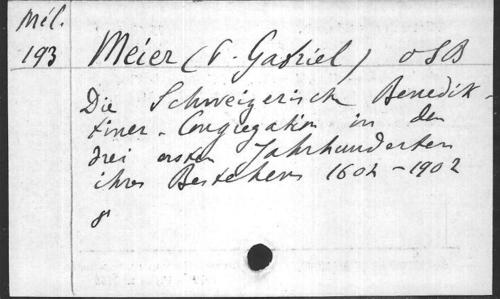 Mél.
193
Meier (P. Gabriel) OSB
Die Schweizerische Benedik-
tiner-Congregation in den
drei ersten Jahrhunderten
ihres Bestehens 1602-1902
8°